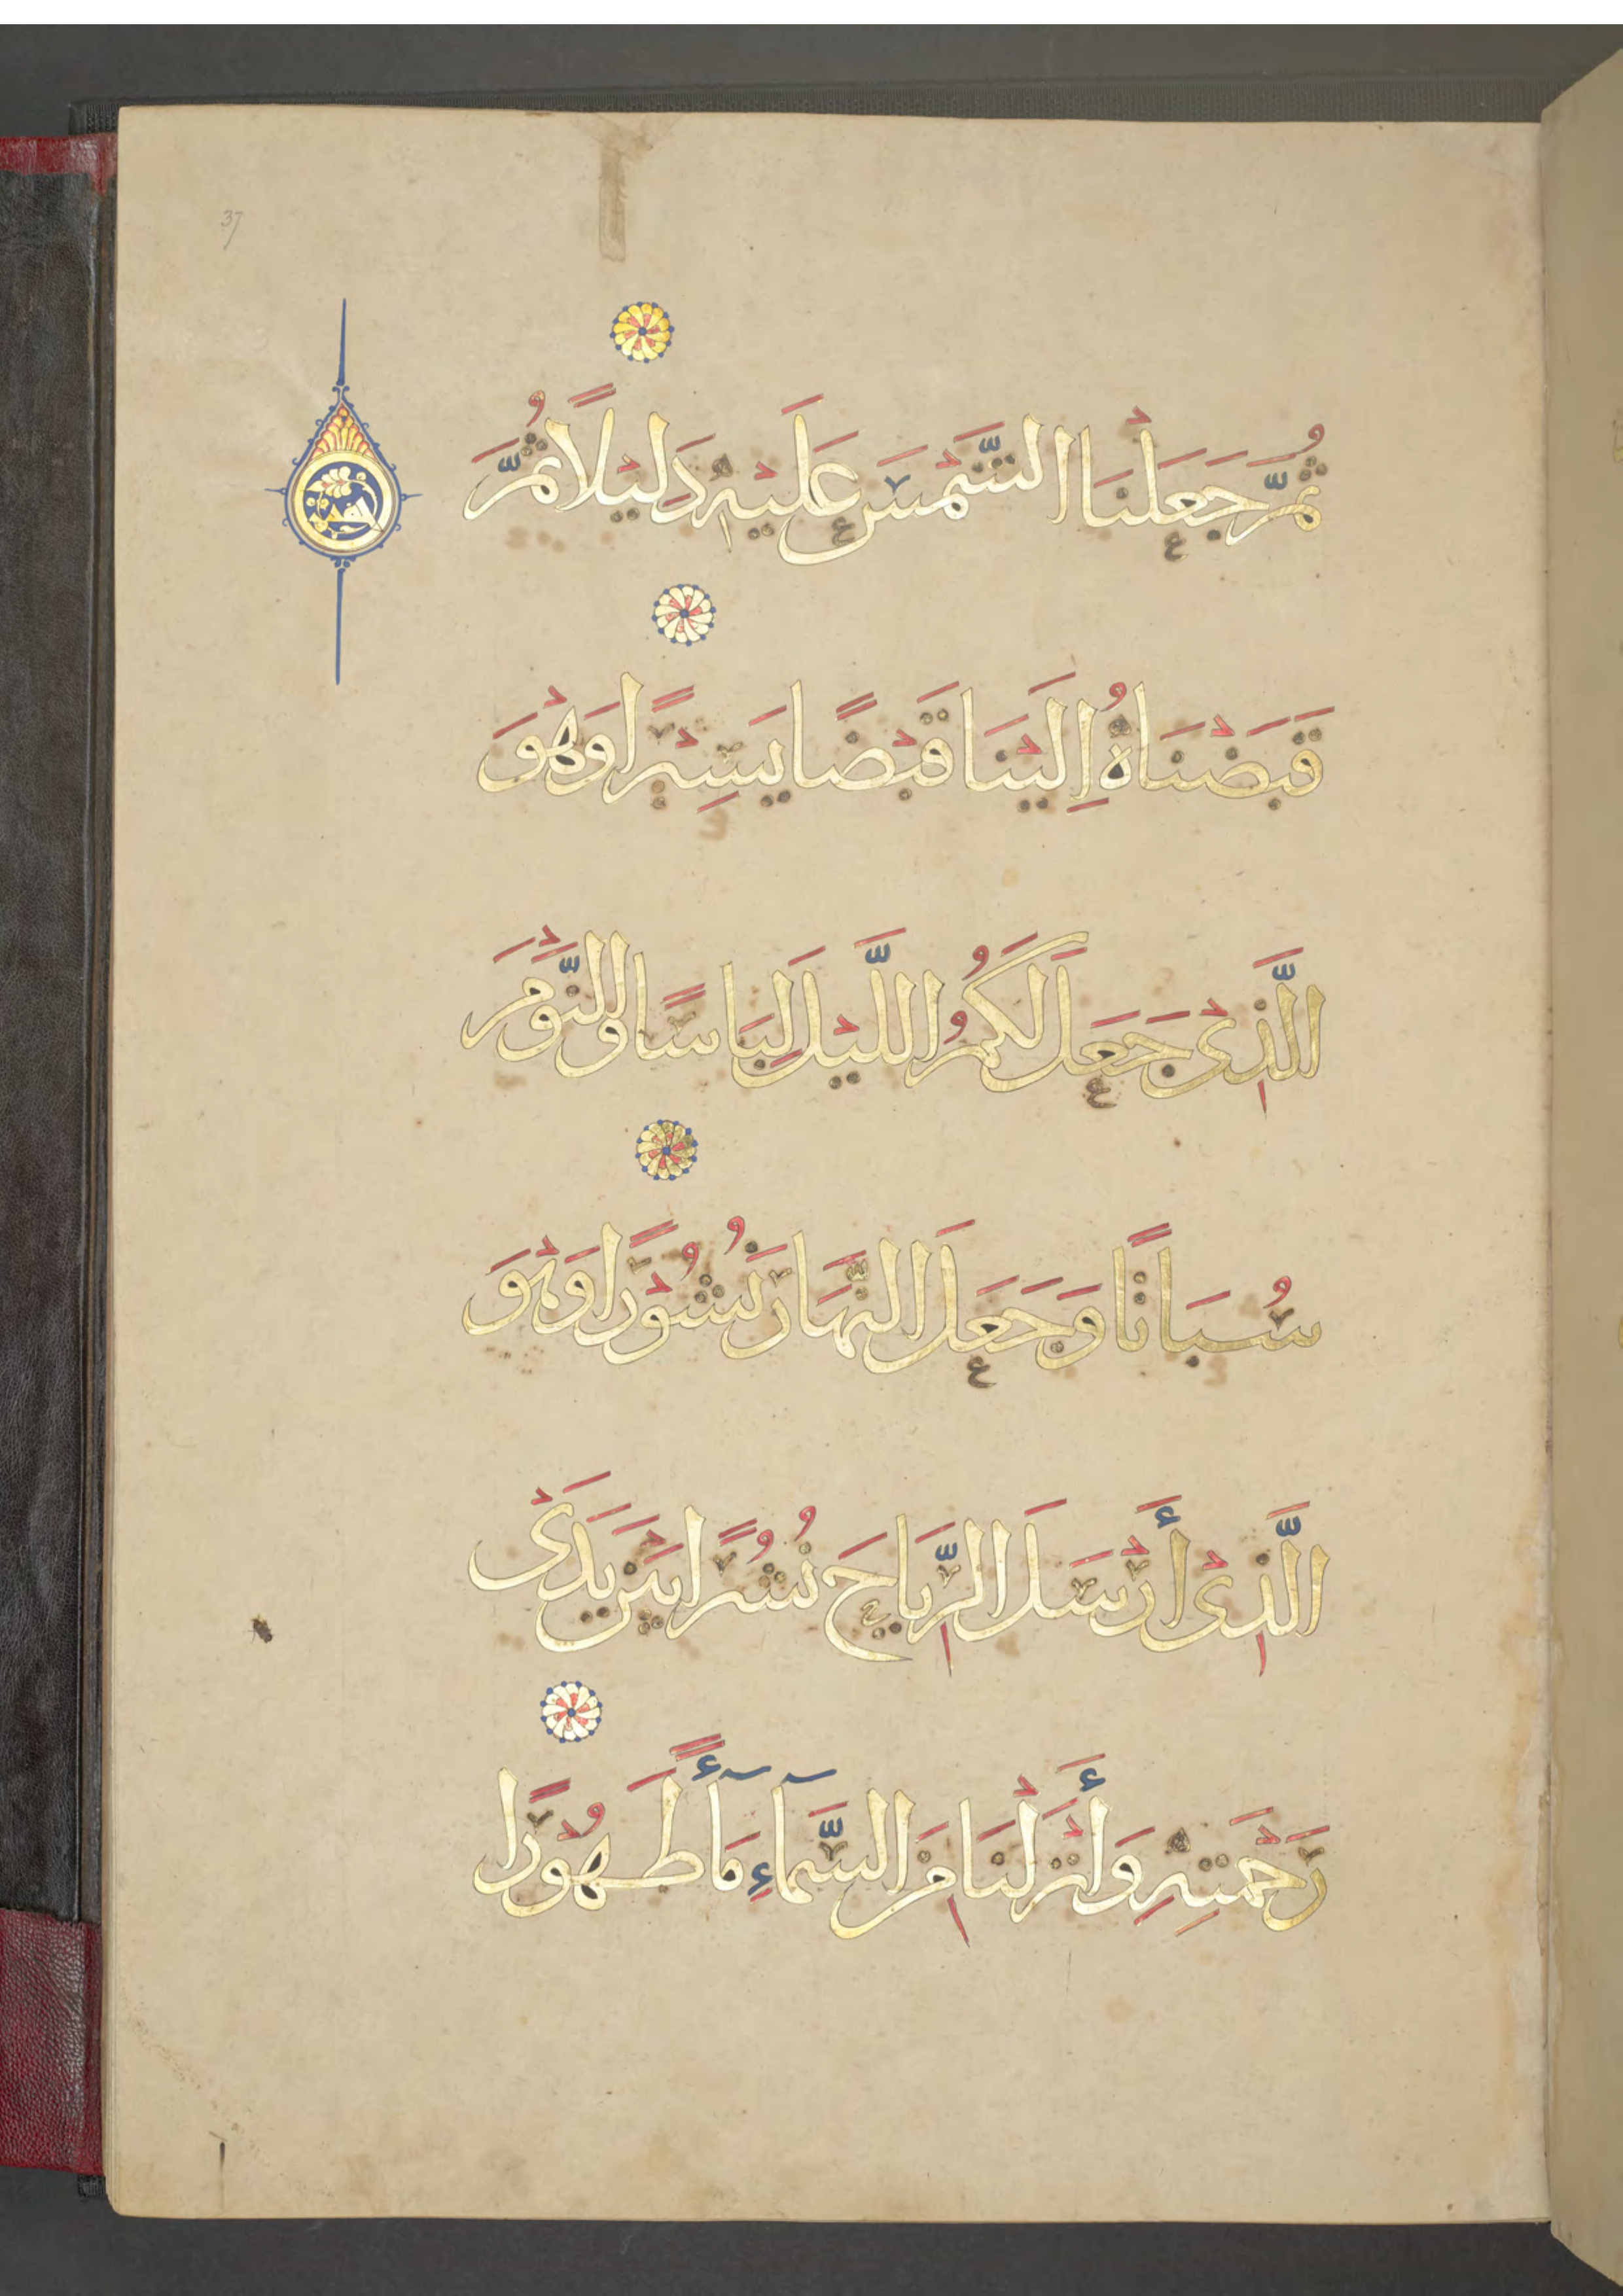 37
ثُمَّ جَعَلْنَا الشَّمْسَ عَلَيْهِ دَلِيْلًا ثُمَّ
قَبَضْنَاهُ اِلَيْنَا قَبْضًا يَسِيْرًا وَهْوَ
الَّذِىْ جَعَلَ لَكُمُ اللَّيْلَ لِبَاسًا وَالنَّوْمَ
سُبَاتًا وَجَعَلَ النَّهَارَ نُشُوْرًا وَهْوَ
الَّذِىْ أَرْسَلَ الرِّيَاحَ نُشُرًا بَيْنَ يَدَىْ
رَحْمَتِهِ وَأَنْزَلْنَا مِنَ السَّمَآءِ مَآءً طَهُوْرًا